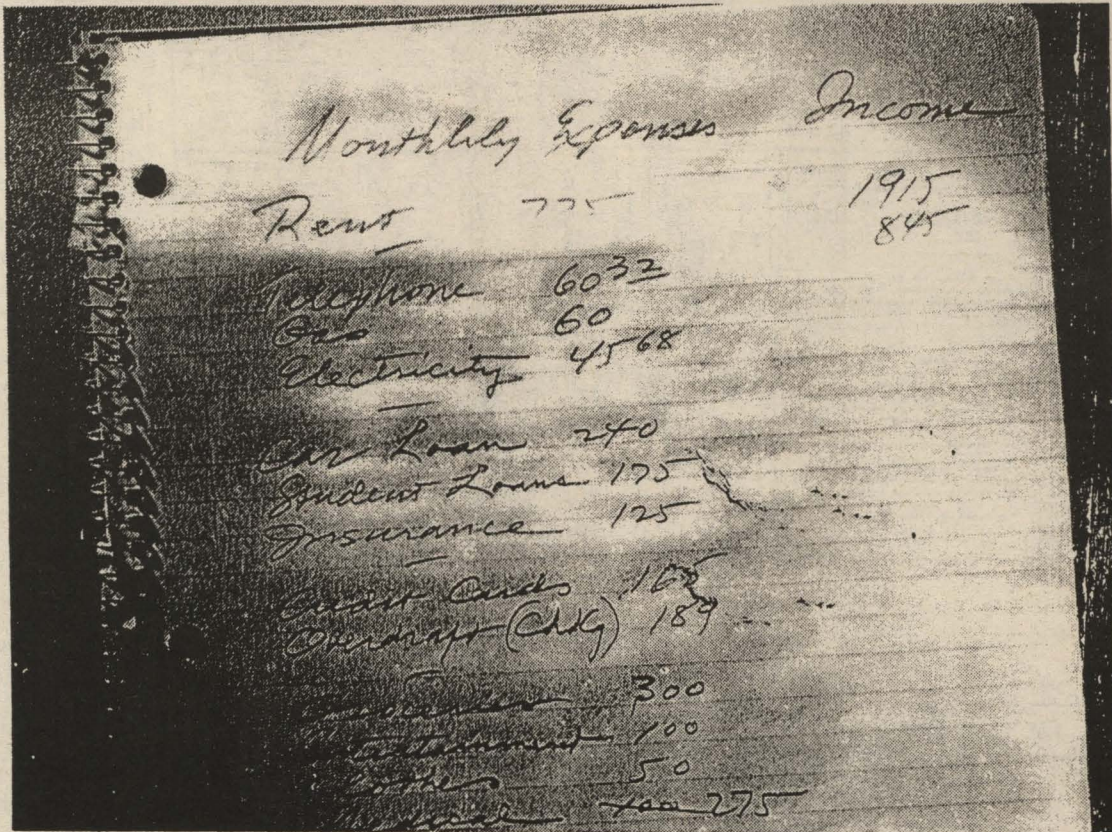 Monthlily Expenses Income
Rent 775 1915
845
Telephone 60 32
Gas 60
Electricity 45 68
Car Loan 240
Student Loans 175
Insurance 125
Credit Cards 165
Overdraft (Chkg) 189
Groceries 300
Entertainment 100
Clothes 50
275